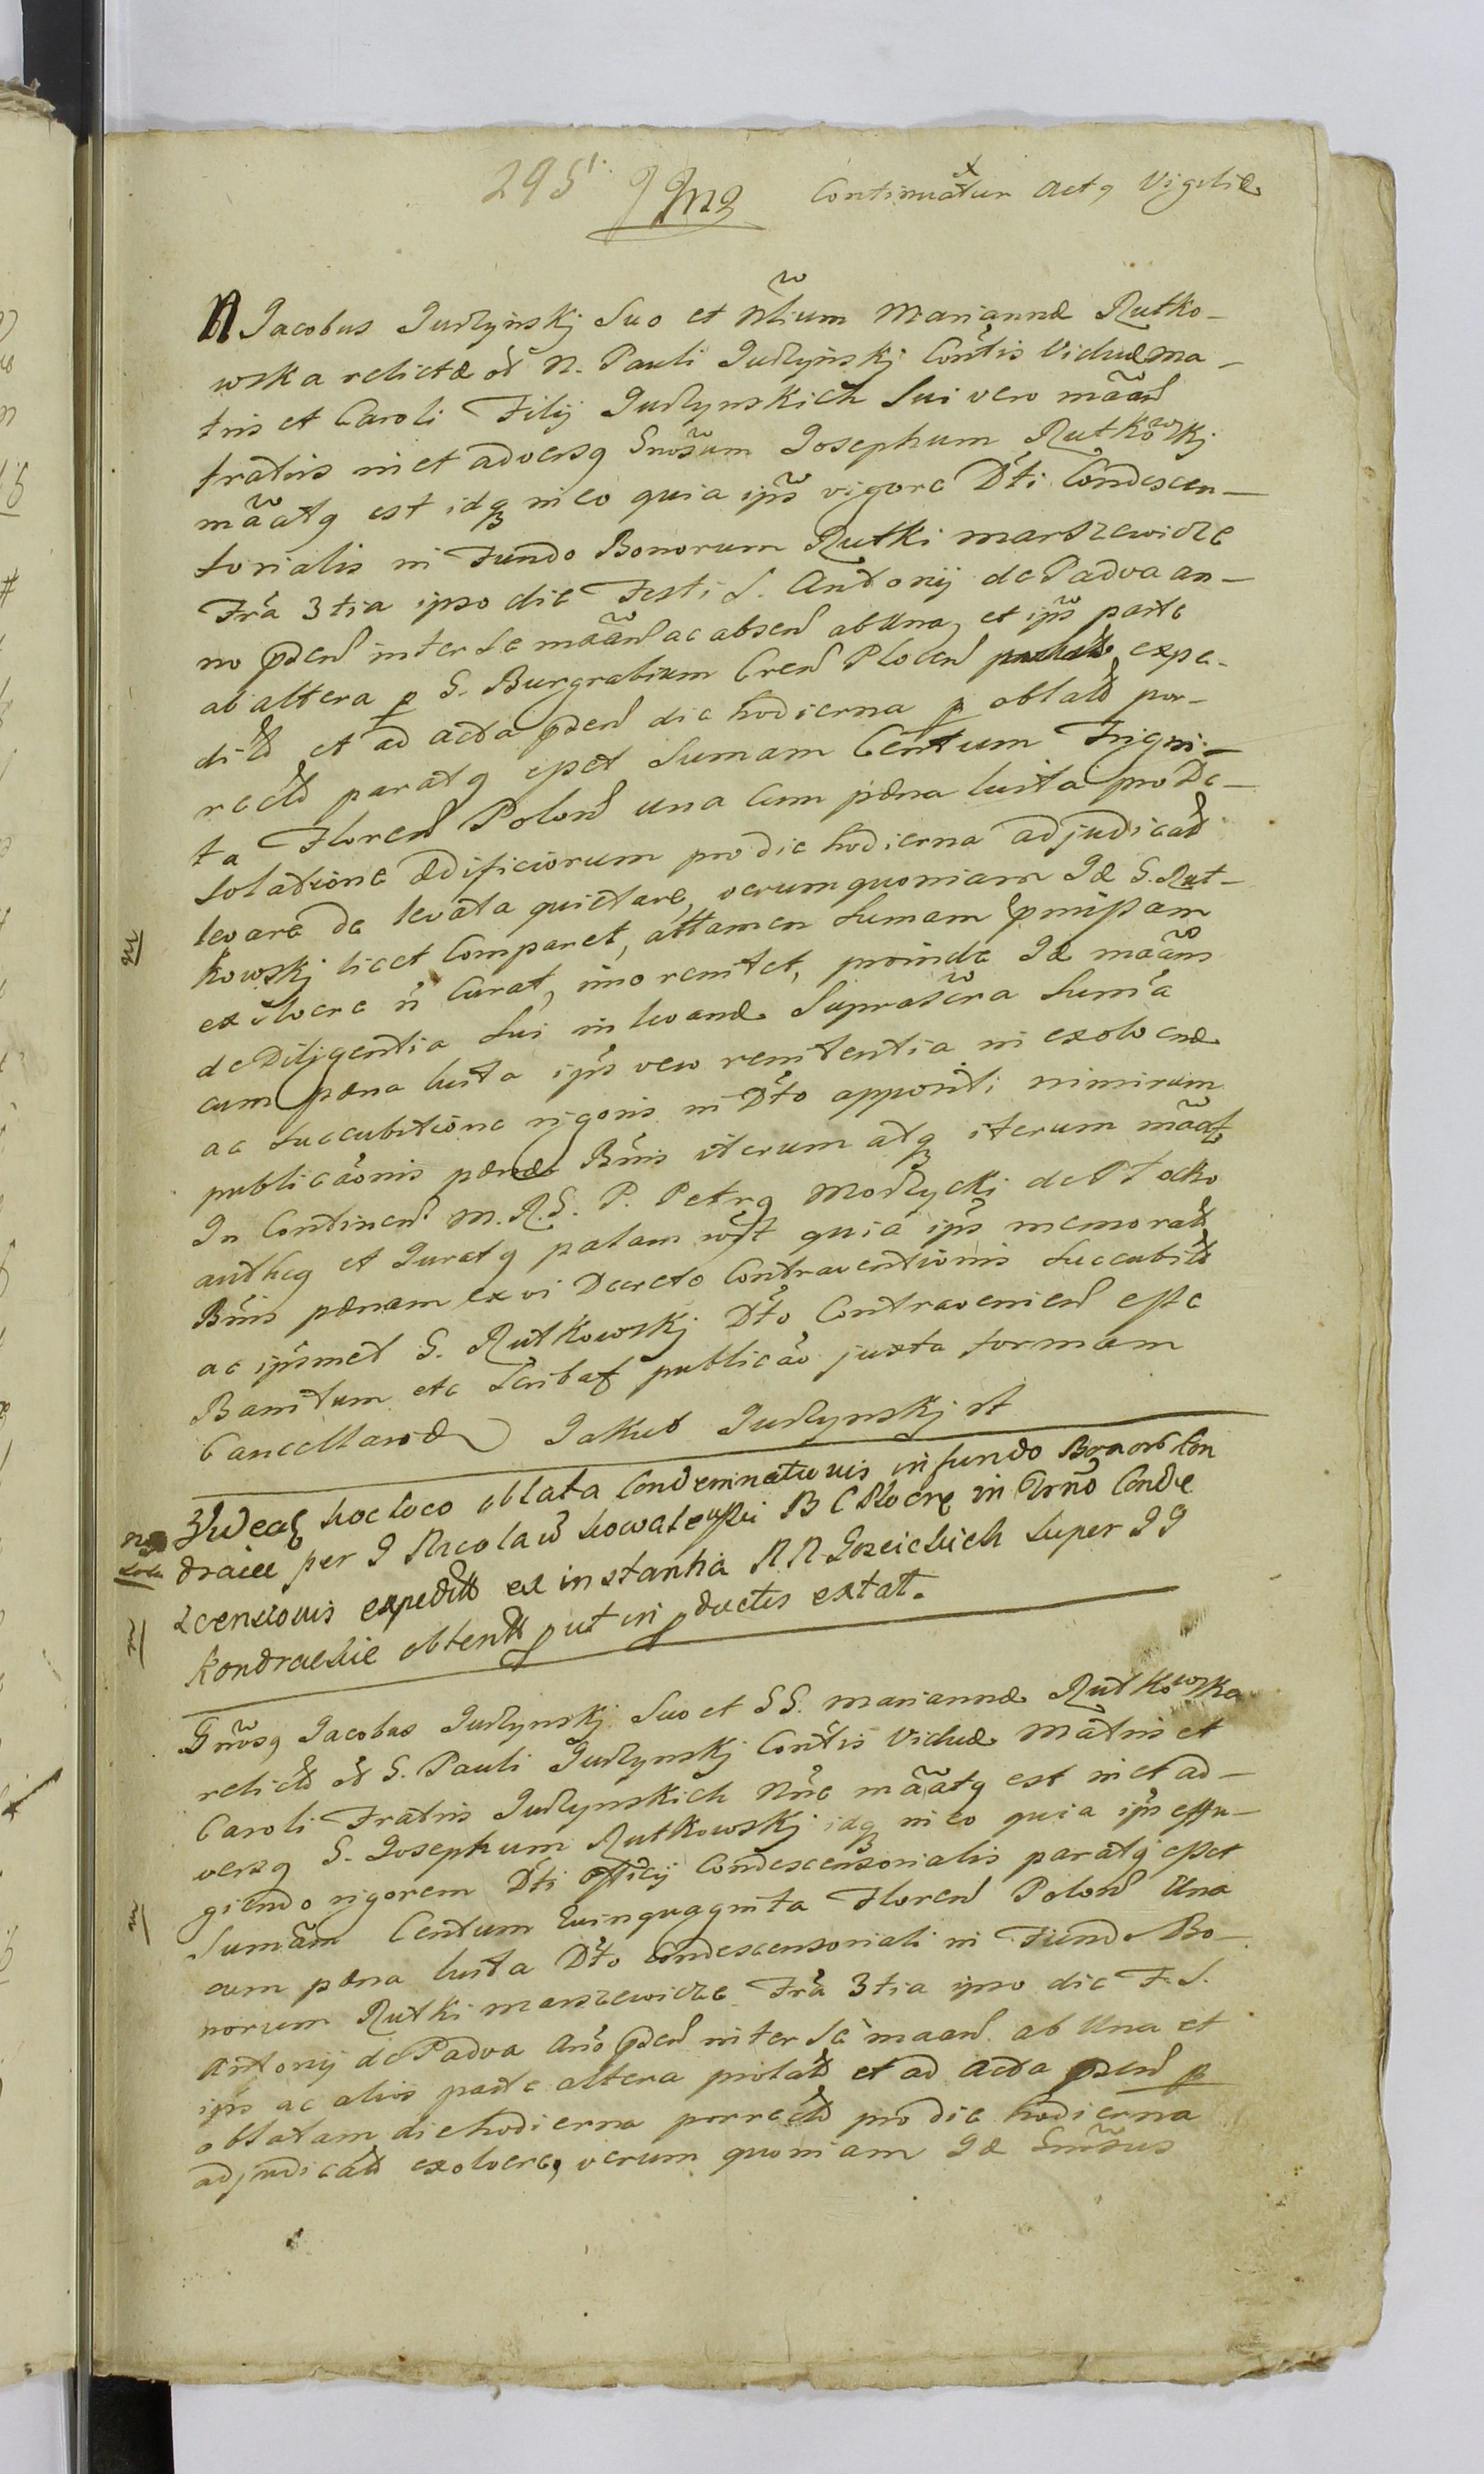 295 Continuatur Actq Vigiliæ
N Jacobus Judlynskj Suo et Nlium Mariannæ Rutko-
wska relictæ N. Pauli Judlynskj Contis Viduæ Ma-
tris et Caroli Filij Judlynskich Sui vero
fratris in et adversq Gnosum Josephum Rutkowskj
mãatq est idq in eo quia ips vigore Dti Condescen-
sorialis in Fundo Bonorum Rutki Marszewicze
Fra 3tia ipso die Festi S. Antonij de Padva an-
no pden inter se mãan ac absen ab Una, et ips parte
ab altera p S. Burgrabium Cren Plocen expe-
dit et ad acta pden die hodierna p oblat por-
rect paratq epet Sumam Centum Trigin-
ta Floren Polon una cum pæna luita pro De-
solatione ædificiorum pro die hodierna adjudicat
levare de levata quietare, verum quoniam Jd S. Rut-
kowskj licet Comparet, attamen Sumam pmissam
exolvere n Curat, imo renitet, proinde Jd mãans
de Diligentia Sui in levanda Suprascra Suma
cum pæna luita ips vero renitentia in exolvend
ac Succubitione rigoris in Dto appositi nimirum
publicaonis pænæ Bnis iterum atq iterum mãat
In Continen M. R. S. P. Petrq Modlyckj de Plocko
authcq et Juratq palam quia ips memorat
Bnis pænam ex vi Decreto Contraventionis Succubit
ac ipsmet S. Rutkowskj Dto Contravenien esse
Banitum etc Scribat publicao juxta formam
Cancellariæ Jakub Judlynskj
hoc loco oblata Condemnationis in fundo Con
draiec per J B C Plocen in Trno Conde
scensionis expedit ex instantia N N super J J
Kondrackie obtent put in pductis extat.
Gnosq Jacobus Judlynskj Suo et S S. Mariannæ Rutkowska
relict S. Pauli Judlynskj Contis Viduæ Matris et
Caroli Fratris Judlynskich Nne mãatq est in et ad-
versq S. Josephum Rutkowskj idq in eo quia ips effu-
giendo rigorem Dti Officij Condescensorialis paratq esset
Sumam Centum Quinquaginta Floren Polon Una
cum pæna luita Dto Condescensoriali in Fundo Bo-
norum Rutki Marszewicze Fra 3tia ipso die F. S.
Antonij de Padva Ano pden inter se maan ab Una et
ips ac alios parte altera prolat et ad acta pden p
oblatam die hodierna porrect pro die hodierna
adjudicat exolvere, verum quoniam Jd Gnosus